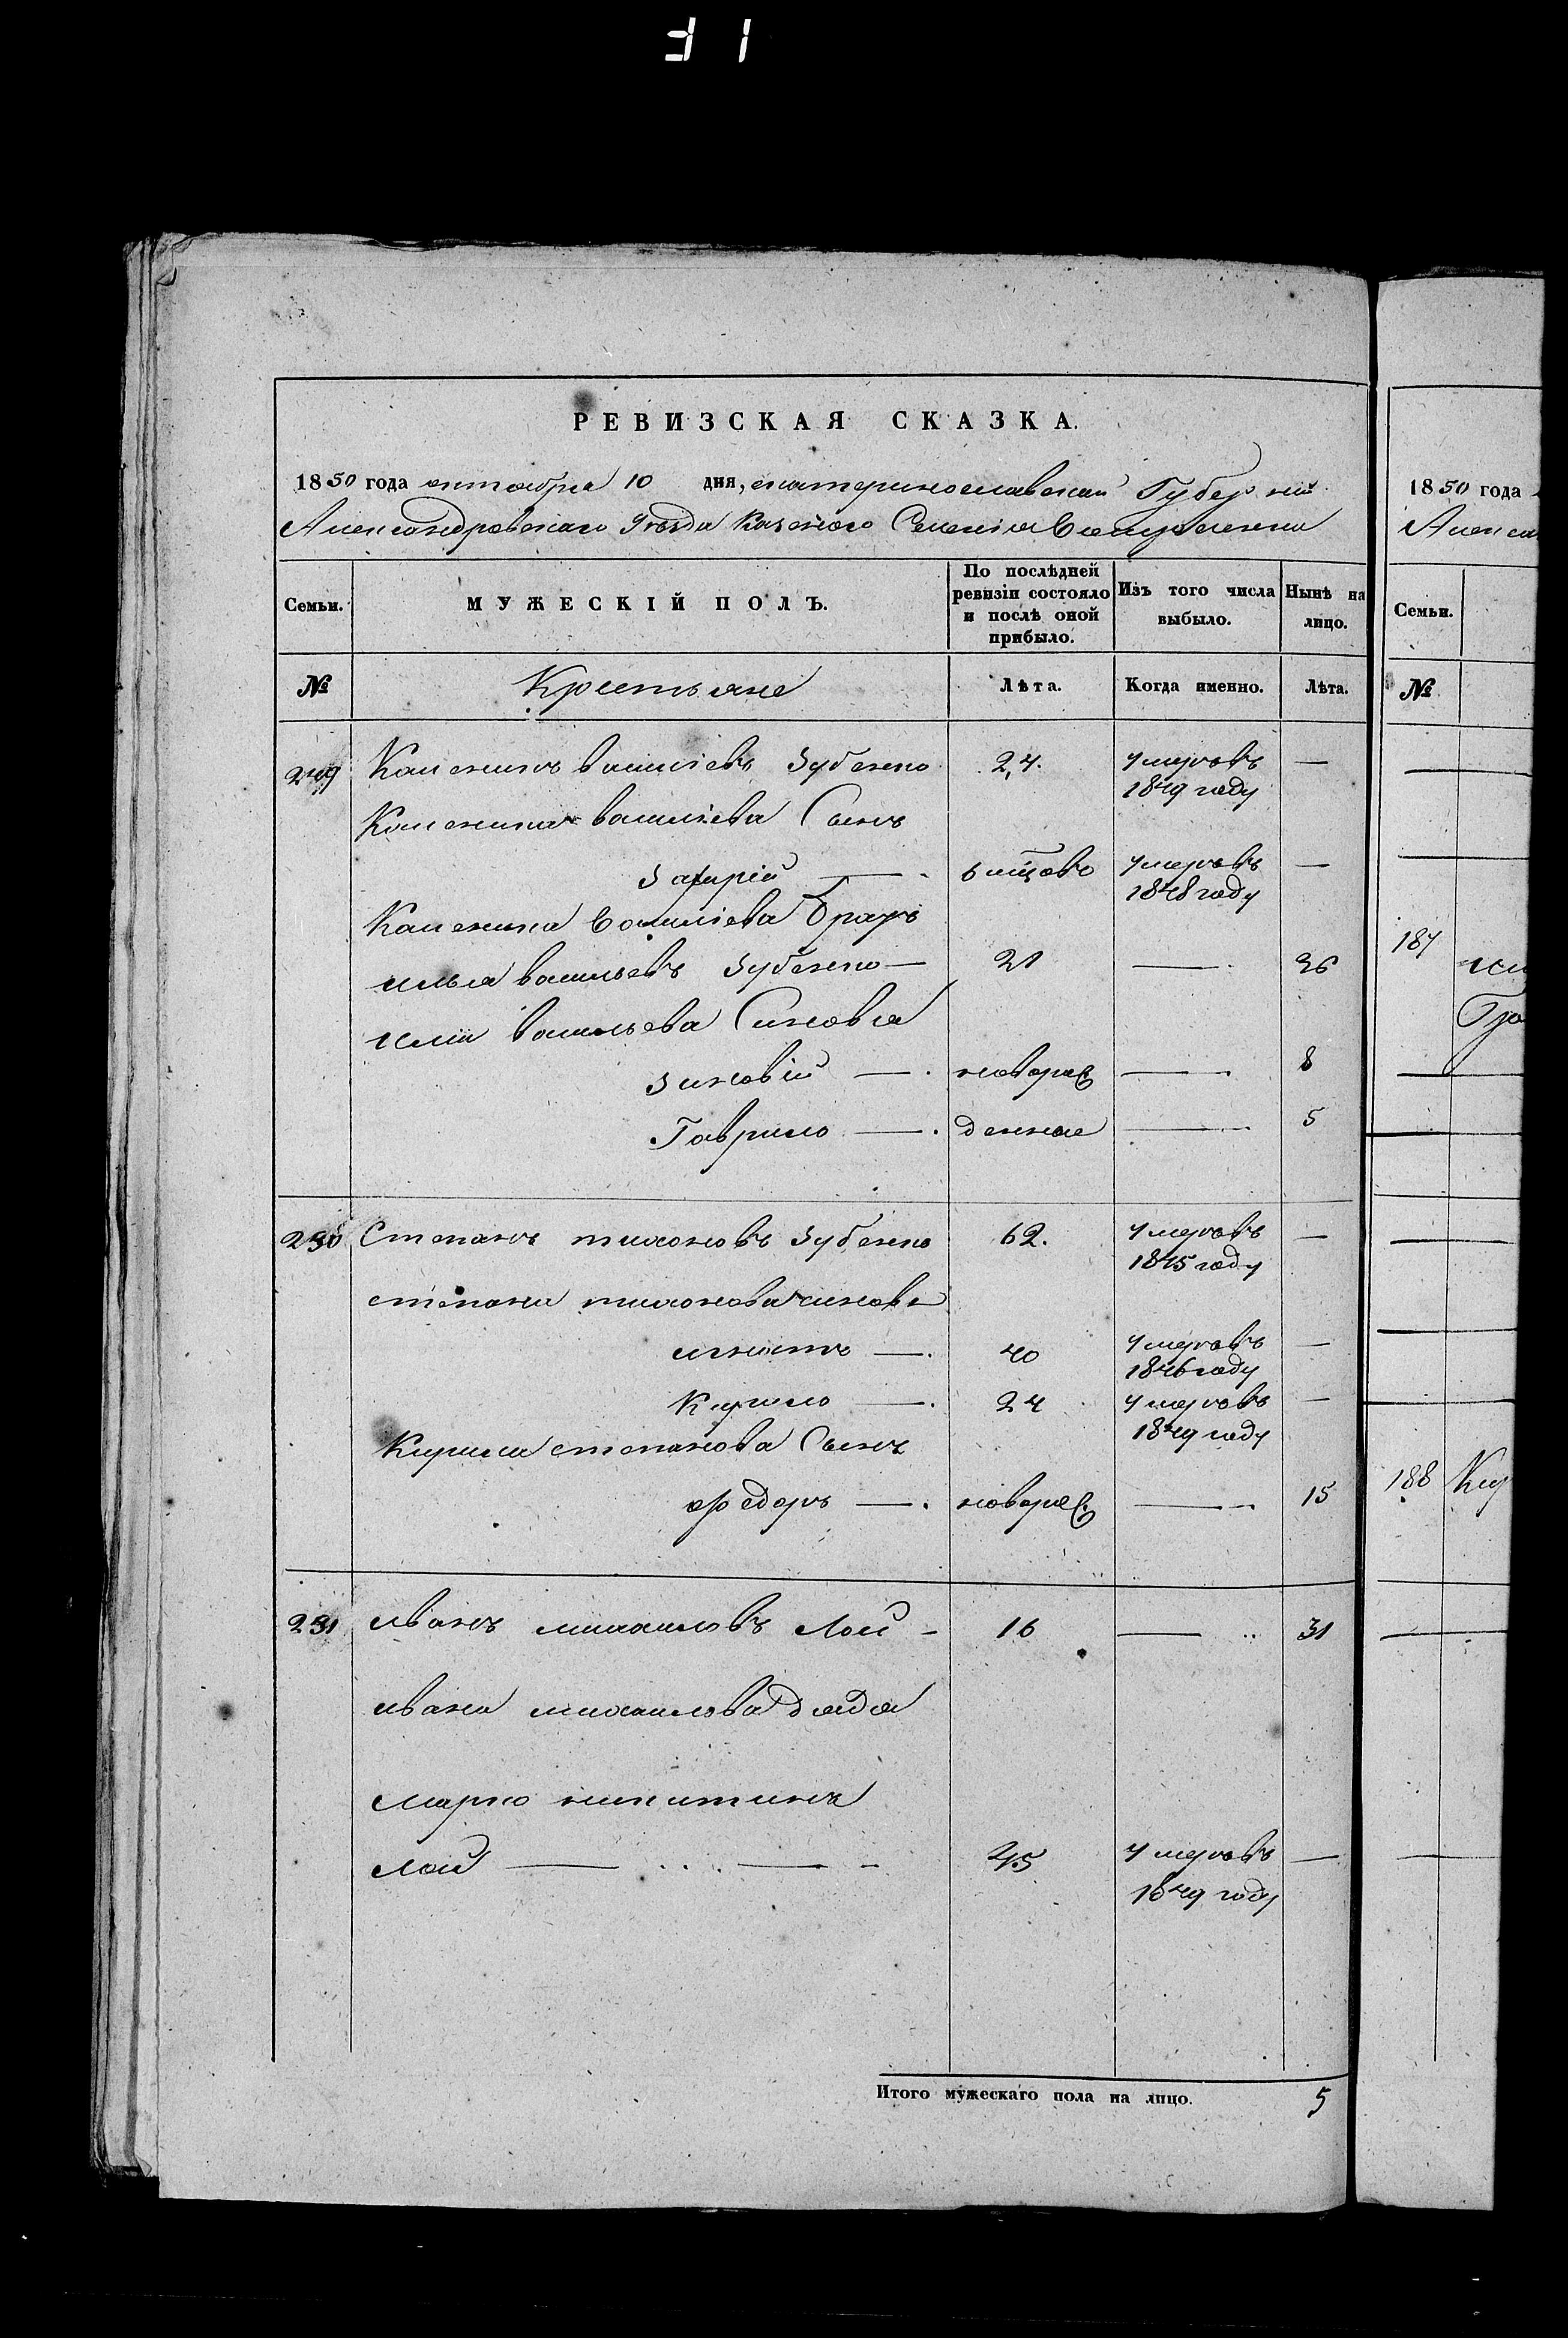 РЕВИЗСКАЯ СКАЗКА.
1850 года октября 10 дня, екатеринославской Губернии
Александровскаго Уезда Казеного Селения
Семьи. МУЖЕСКІЙ ПОЛЪ. По послѣдней ревизіи состояло и послѣ оной прибыло. Изъ того числа выбыло. Нынѣ на лицо.
№ Крестьяне Лѣта. Когда именно. Лѣта.
249 василіевъ Зубенко 24. умеръ въ —
1849 году
василіева Сынъ
— . умеръ въ —
1848 году
василіева братъ
илья васильевъ Зубенко — 21 — 36
ильи васильева Синовья
зиновій — . новорож — 8
Гаврило — . денные — 5
250 Степанъ тихоновъ Зубенко 62. умеръ въ —
1845 году
степана тихонова синовья
игнатъ — . 40 умеръ въ —
1846 году
Кирило — . 24 умеръ въ —
1849 году
Кирила степанова Сынъ
федоръ — . новорож. — 15
251 иванъ михаиловъ Лой - 16 — 31
ивана михаилова дядя
марко никитинъ
лой — 45 умеръ въ —
1849 году
Итого мужескаго пола на лицо. 5
1850 года
Семьи.
№
187
188 Кир
31